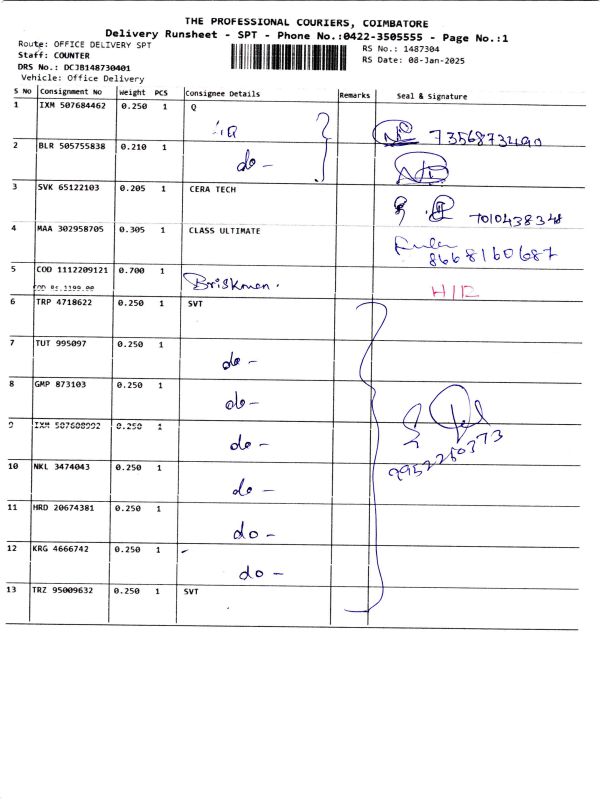 THE PROFESSIONAL COURIERS, COIMBATORE
Delivery Runsheet - SPT - Phone No.:0422-3505555 - Page No.:1
Route: OFFICE DELIVERY SPT
RS No.: 1487304
Staff: COUNTER
RS Date: 08-Jan-2025
DRS No.: DCJB148730401
Vehicle: Office Delivery
S No Consignment No Weight PCS Consignee Details Remarks Seal & Signature
1 IXM 507684462 0.250 1 Q
7356873490
2 BLR 505755838 0.210 1
do -
3 SVK 65122103 0.205 1 CERA TECH
7010438348
4 MAA 302958705 0.305 1 CLASS ULTIMATE
8668160687
5 COD 1112209121 0.700 1 Briskmen.
COD Rs.1199.00
6 TRP 4718622 0.250 1 SVT
7 TUT 995097 0.250 1
do -
8 GMP 873103 0.250 1
do -
9 IXM 507608992 0.250 1
do -
9952250373
10 NKL 3474043 0.250 1
do -
11 HRD 20674381 0.250 1
do -
12 KRG 4666742 0.250 1
do -
13 TRZ 95009632 0.250 1 SVT